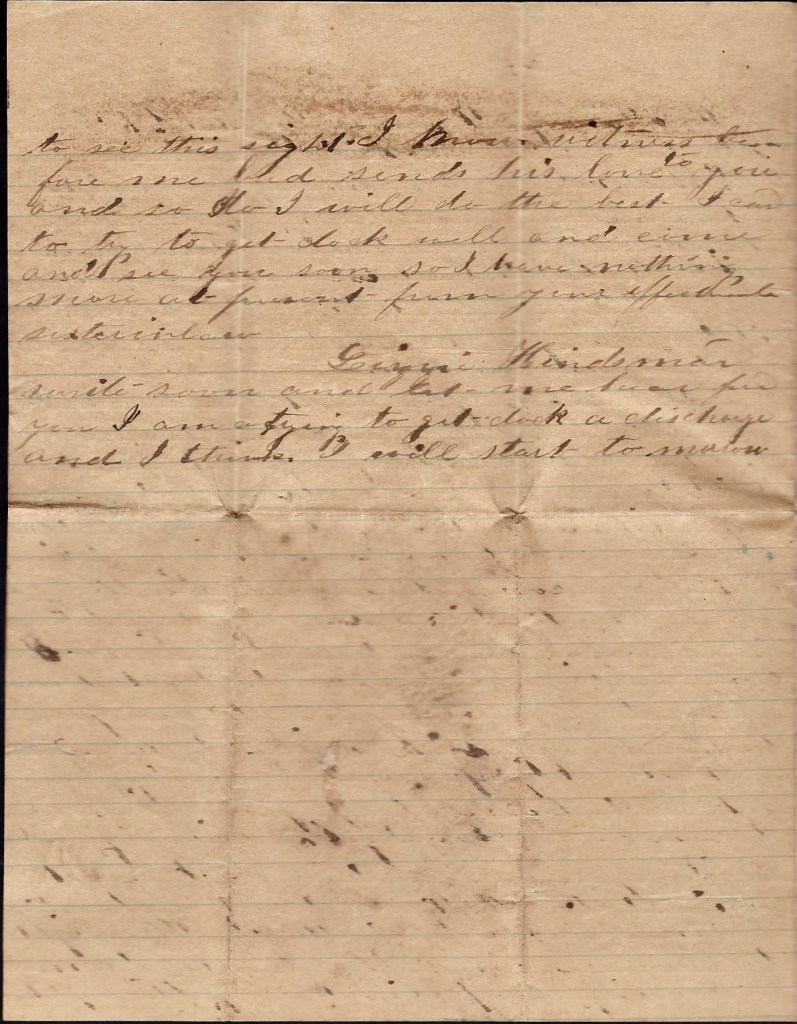 to see this sight I know vitmas be
fore me bud sends his love to you
and so do I will do the best I can
to try to get dock well and come
and see you soon so I have nothing
more at present from your affectunate
sisterinlaw
Lizzie Hindsman
write soon and let me hear for
you I am a tying to get dock a discharge
and I think I will start to morow